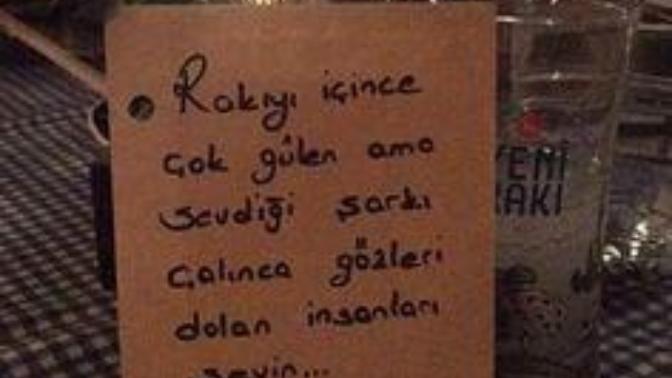 Rakıyı içince
çok gülen ama
sevdiği şarkı
çalınca gözleri
dolan insanları
sevin...
YENİ
RAKI